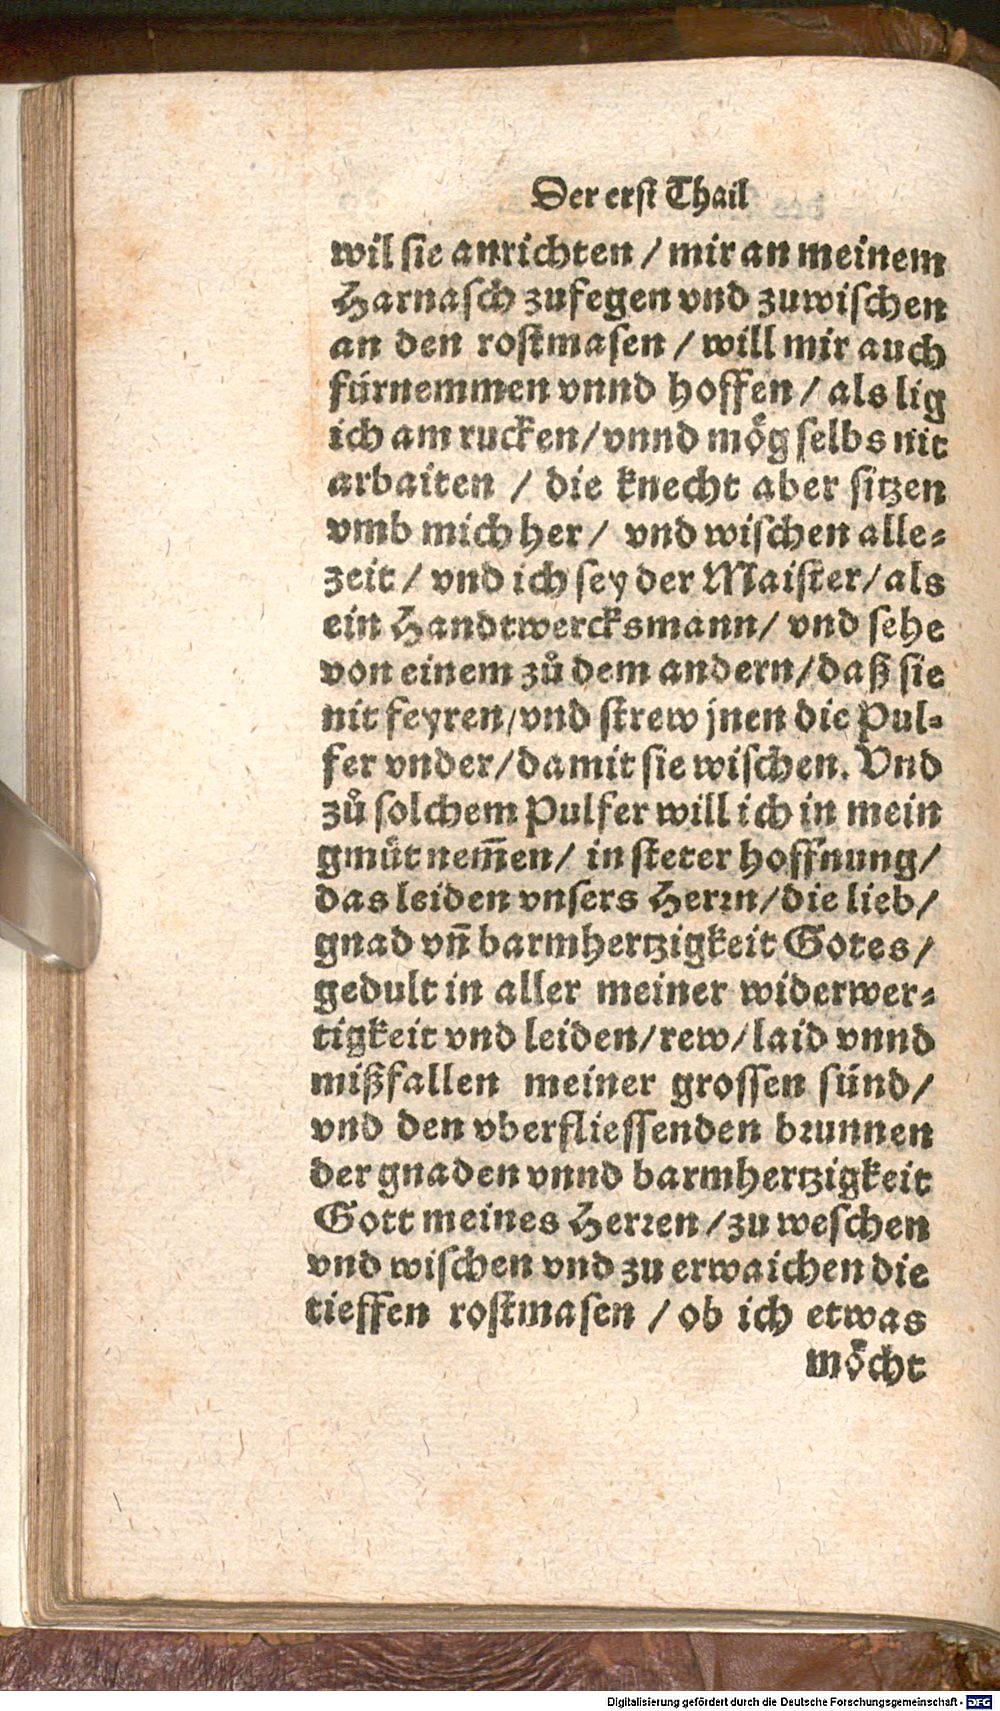 Der erst Thail
wil sie anrichten / mir an meinem
Harnasch zufegen vnd zuwischen
an den rostmasen / will mir auch
fürnemmen vnnd hoffen / als lig
ich am rucken / vnnd mög selbs nit
arbaiten / die knecht aber sitzen
vmb mich her / vnd wischen alle-
zeit / vnd ich sey der Maister / als
ein Handtwercksmann / vnd sehe
von einem zů dem andern / daß sie
nit feyren / vnd strew jnen die Pul-
fer vnder / damit sie wischen. Vnd
zů solchem Pulfer will ich in mein
gmüt nem̄en / in steter hoffnung /
das leiden vnsers Herrn / die lieb /
gnad vn̄ barmhertzigkeit Gotes /
gedult in aller meiner widerwer-
tigkeit vnd leiden / rew / laid vnnd
mißfallen meiner grossen sünd /
vnd den vberfliessenden brunnen
der gnaden vnnd barmhertzigkeit
Gott meines Herren / zu weschen
vnd wischen vnd zu erwaichen die
tieffen rostmasen / ob ich etwas
möcht
Digitalisierung gefördert durch die Deutsche Forschungsgemeinschaft - DFG